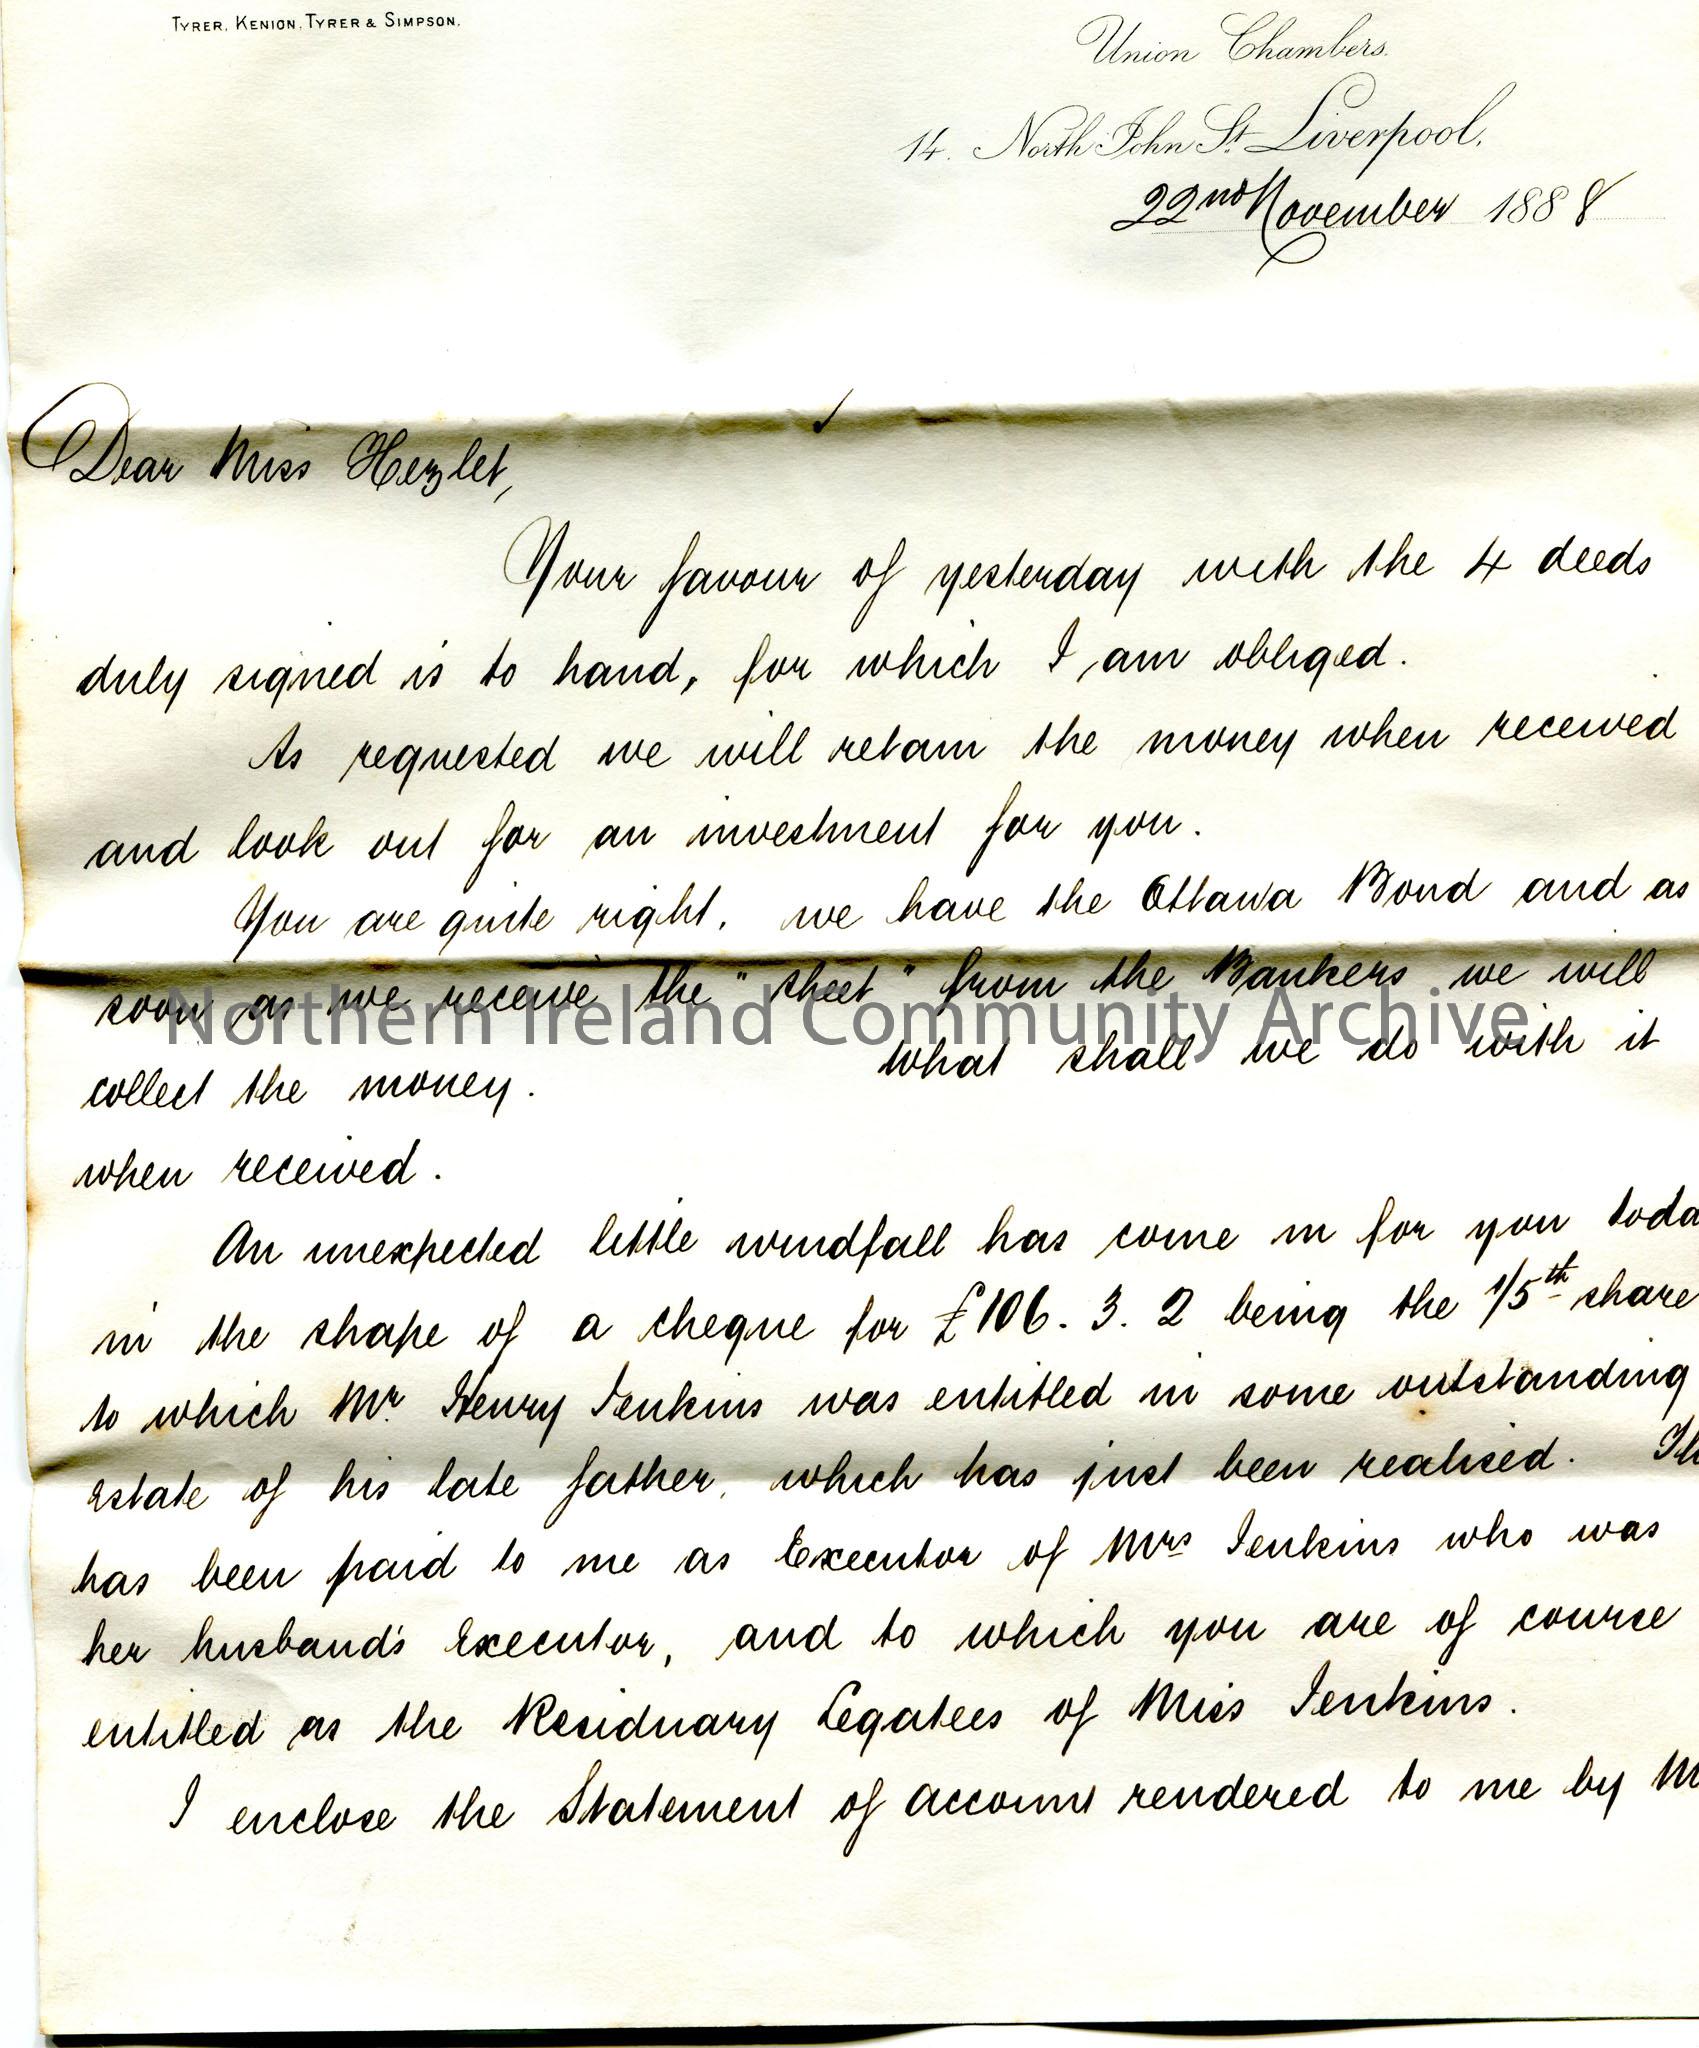 TYRER, KENION, TYRER & SIMPSON.
Union Chambers.
14. North John St. Liverpool,
22nd November 1888
Dear Miss Hezlet,
Your favour of yesterday with the 4 deeds
duly signed is to hand, for which I am obliged.
As requested we will retain the money when received
and look out for an investment for you.
You are quite right, we have the Ottawa Bond and as
soon as we receive the "sheet" from the Bankers we will
Northern Ireland Community Archive
collect the money. What shall we do with it
when received.
An unexpected little windfall has come in for you toda
in the shape of a cheque for £106. 3. 2 being the 1/5th share
to which Mr. Henry Jenkins was entitled in some outstanding
estate of his late father, which has just been realised. Th
has been paid to me as Executor of Mrs Jenkins who was
her husband's Executor, and to which you are of course
entitled as the Residuary Legatees of Miss Jenkins.
I enclose the Statement of account rendered to me by M